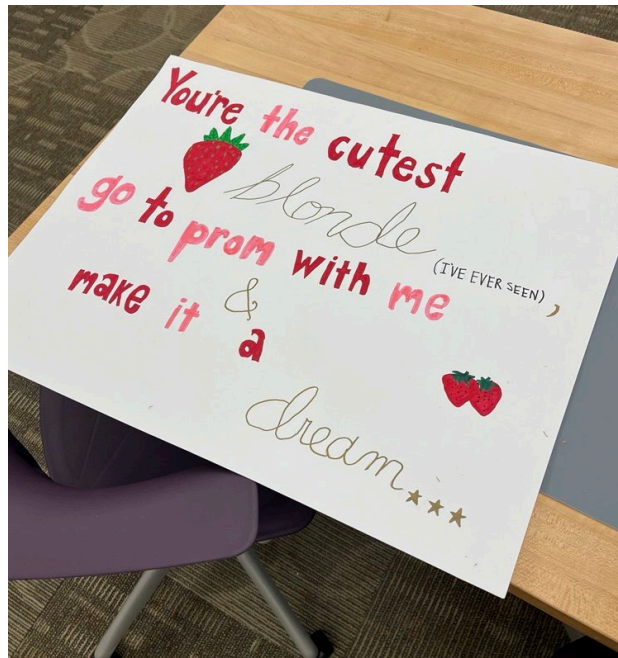 You're the cutest
blonde
(I'VE EVER SEEN),
go to prom with me
&
make it a
dream...